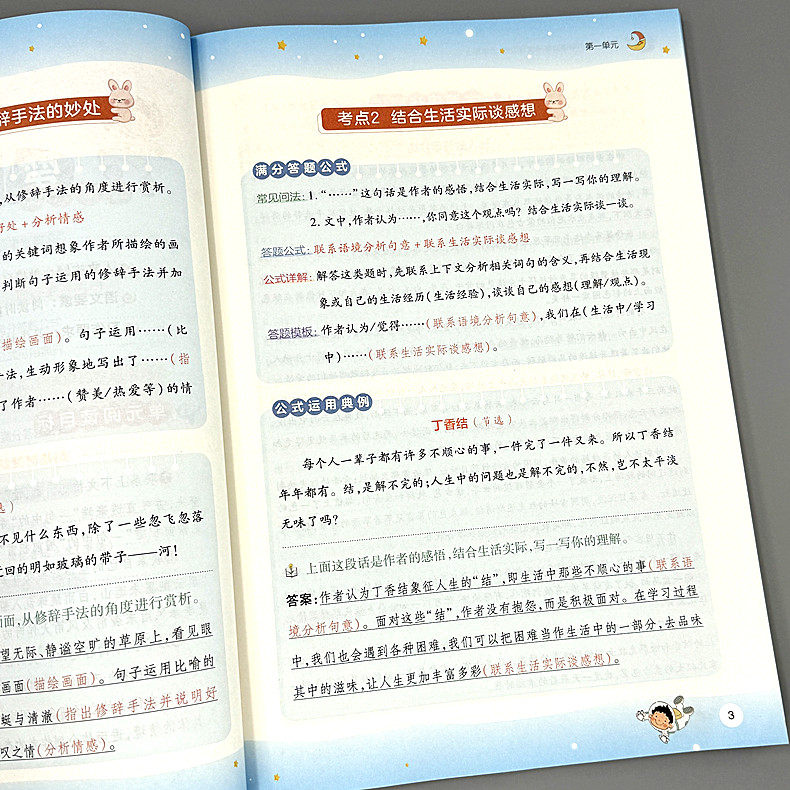 辞手法的妙处
从修辞手法的角度进行赏析。
好处+分析情感
的关键词想象作者所描绘的画
判断句子运用的修辞手法并加
描绘画面)。句子运用……(比
法,生动形象地写出了……(指
了作者……(赞美/热爱等)的情
不见什么东西,除了一些忽飞忽落
迂回的明如玻璃的带子——河!
画面,从修辞手法的角度进行赏析。
望无际、静谧空旷的草原上,看见眼
画面(描绘画面)。句子运用比喻的
蜒与清澈(指出修辞手法并说明好
叹之情(分析情感)。
第一单元
考点2 结合生活实际谈感想
满分答题公式
常见问法:1.“……”这句话是作者的感悟,结合生活实际,写一写你的理解。
2.文中,作者认为……,你同意这个观点吗?结合生活实际谈一谈。
答题公式:联系语境分析句意+联系生活实际谈感想
公式详解:解答这类题时,先联系上下文分析相关词句的含义,再结合生活现
象或自己的生活经历(生活经验),谈谈自己的感想(理解/观点)。
答题模板:作者认为/觉得……(联系语境分析句意),我们在(生活中/学习
中)……(联系生活实际谈感想)。
公式运用典例
丁香结(节选)
每个人一辈子都有许多不顺心的事,一件完了一件又来。所以丁香结
年年都有。结,是解不完的;人生中的问题也是解不完的,不然,岂不太平淡
无味了吗?
上面这段话是作者的感悟,结合生活实际,写一写你的理解。
答案:作者认为丁香结象征人生的“结”,即生活中那些不顺心的事(联系语
境分析句意)。面对这些“结”,作者没有抱怨,而是积极面对。在学习过程
中,我们也会遇到各种困难,我们可以把困难当作生活中的一部分,去品味
其中的滋味,让人生更加丰富多彩(联系生活实际谈感想)。
3